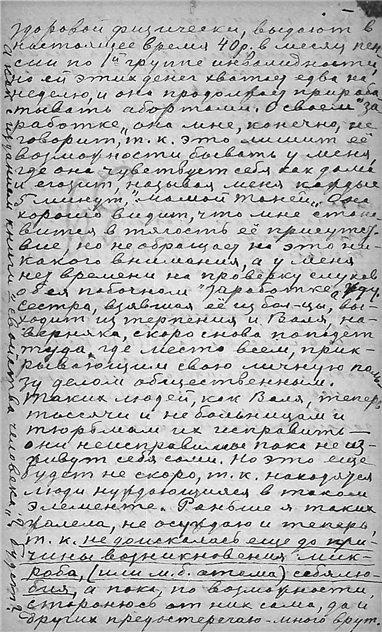 здоровой физически, выдают в
настоящее время 40 р. в месяц пен
сии по 1й группе инвалидности,
но ей этих денег хватает едва на
неделю, и она продолжает прираба
тывать абортами. О своем "за
работке" она мне, конечно, не
говорит, т. к. это лишит её
возможности бывать у меня,
где она чувствует себя как дома
и егозит, называя меня каждые
5 минут, "мамой Тоней". Она
хорошо видит, что мне стано
вится в тягость её присутст
вие, но не обращает на это ни
какого внимания, а у меня
нет времени на проверку слухов
о её побочном "заработке",
сестра, взявшая её из бол-цы, вы
ходит из терпения и Валя, на
верняка, скоро снова попадет
туда, где место всем, прик
рывающим свою личную поль
зу делом общественным.
Таких людей, как Валя, теперь
тысячи и не больницам и
тюрьмам их исправить -
они неисправимые пока не из
живут себя сами. Но это еще
будет не скоро, т. к. находятся
люди нуждающиеся в таком
элементе. Раньше я таких
жалела, не осуждаю и теперь,
т. к. не доискалась еще до при
чины возникновения мик
роба, (или м. б. атома) себялю-
бия, а пока, по возможности,
сторонюсь от них сама, да и
других предостерегаю - много врут.
книги
человека"